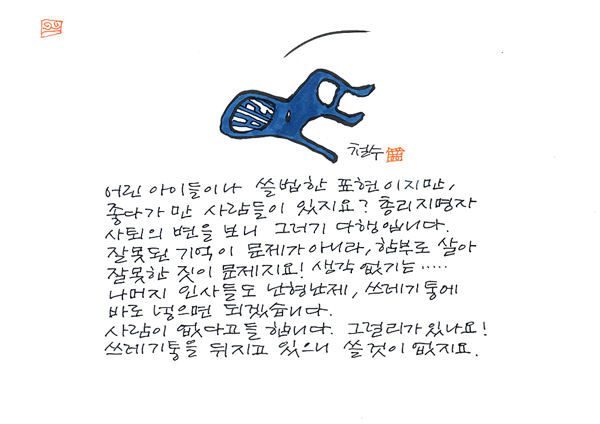 철수
어린 아이들이나 쓸법한 표현이지만,
좋다가 만 사람들이 있지요? 총리지명자
사퇴의 변을 보니 그러기 다행입니다.
잘못된 기억이 문제가 아니라, 함부로 살아
잘못한 짓이 문제지요! 생각 없기는.....
나머지 인사들도 난형난제, 쓰레기통에
바로 넣으면 되겠습니다.
사람이 없다고들 합니다. 그럴리가 있나요!
쓰레기통을 뒤지고 있으니 쓸 것이 없지요.